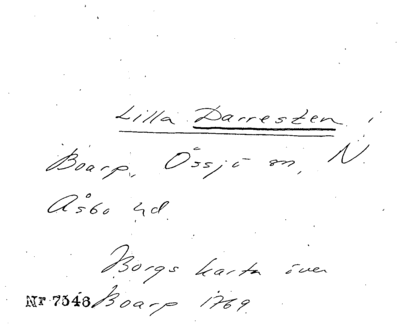 Lilla Darresten i
Boarp, Össjö sn, N.
Åsbo hd.
Borgs karta över
Nr 7348 Boarp 1769